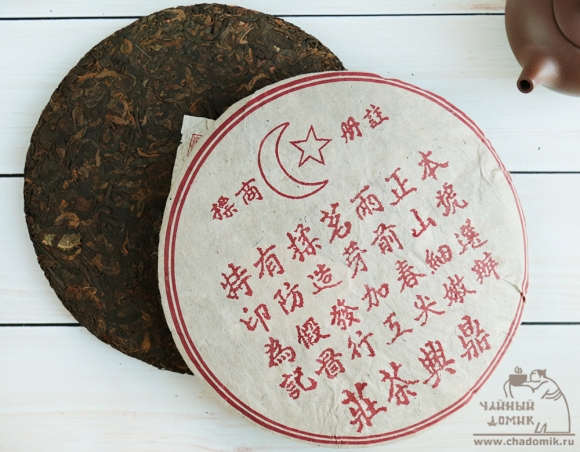 註册
商標
本號選辦
正山細嫩
雨前春尖
茗芽加工
揉造發行
有防假圖
特印為記
鼎興茶莊
ЧАЙНЫЙ
ДОМИК
www.chadomik.ru